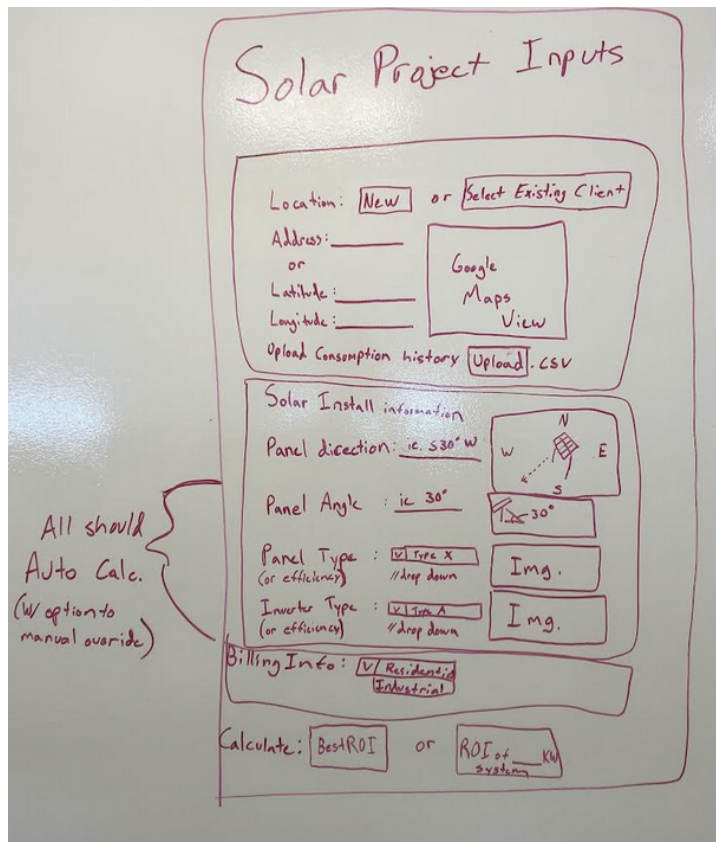 Solar Project Inputs
Location: New or Select Existing Client
Address:
or
Latitude:
Longitude:
Google
Maps
View
Upload Consumption history Upload .CSV
Solar Install information
Panel direction: ie. S30° W
N
W E
S
Panel Angle : ie 30°
30°
Panel Type : V Type X
(or efficiency) // drop down
Img.
Inverter Type : V Type A
(or efficiency) // drop down
Img.
All should
Auto Calc.
(w/ option to
manual override)
Billing Info: V Residential
Industrial
Calculate: Best ROI or ROI of ___ KW
system